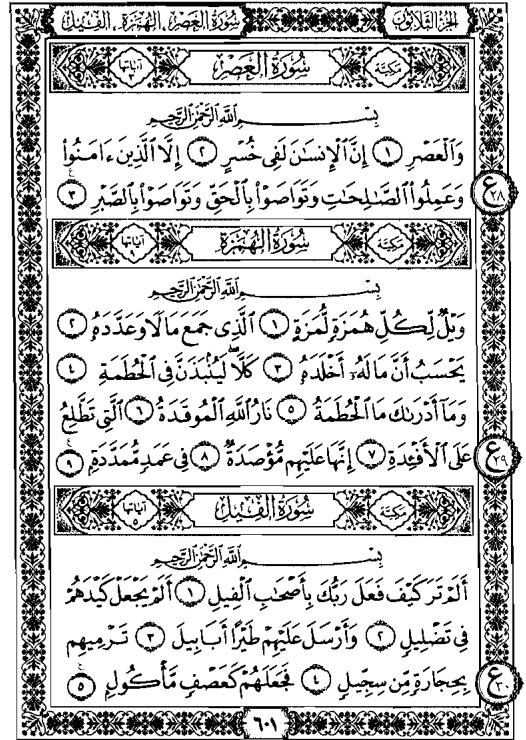 الجزء الثلاثون سورة العصر ، الهمزة ، الفيل
مكية سورة العصر آياتها ٣
بِسْمِ اللَّهِ الرَّحْمَٰنِ الرَّحِيمِ
وَالْعَصْرِ ١ إِنَّ الْإِنسَٰنَ لَفِى خُسْرٍ ٢ إِلَّا الَّذِينَ ءَامَنُوا۟
وَعَمِلُوا۟ الصَّٰلِحَٰتِ وَتَوَاصَوْا۟ بِالْحَقِّ وَتَوَاصَوْا۟ بِالصَّبْرِ ٣ ع ٢٨
مكية سورة الهمزة آياتها ٩
بِسْمِ اللَّهِ الرَّحْمَٰنِ الرَّحِيمِ
وَيْلٌ لِّكُلِّ هُمَزَةٍ لُّمَزَةٍ ١ الَّذِى جَمَعَ مَالًا وَعَدَّدَهُ ٢
يَحْسَبُ أَنَّ مَالَهُۥٓ أَخْلَدَهُ ٣ كَلَّا ۖ لَيُنۢبَذَنَّ فِى الْحُطَمَةِ ٤
وَمَآ أَدْرَىٰكَ مَا الْحُطَمَةُ ٥ نَارُ اللَّهِ الْمُوقَدَةُ ٦ الَّتِى تَطَّلِعُ
عَلَى الْأَفْـِٔدَةِ ٧ إِنَّهَا عَلَيْهِم مُّؤْصَدَةٌ ٨ فِى عَمَدٍ مُّمَدَّدَةٍ ٩ ع ٢٩
مكية سورة الفيل آياتها ٥
بِسْمِ اللَّهِ الرَّحْمَٰنِ الرَّحِيمِ
أَلَمْ تَرَ كَيْفَ فَعَلَ رَبُّكَ بِأَصْحَٰبِ الْفِيلِ ١ أَلَمْ يَجْعَلْ كَيْدَهُمْ
فِى تَضْلِيلٍ ٢ وَأَرْسَلَ عَلَيْهِمْ طَيْرًا أَبَابِيلَ ٣ تَرْمِيهِم
بِحِجَارَةٍ مِّن سِجِّيلٍ ٤ فَجَعَلَهُمْ كَعَصْفٍ مَّأْكُولٍ ٥ ع ٣٠
٦٠١